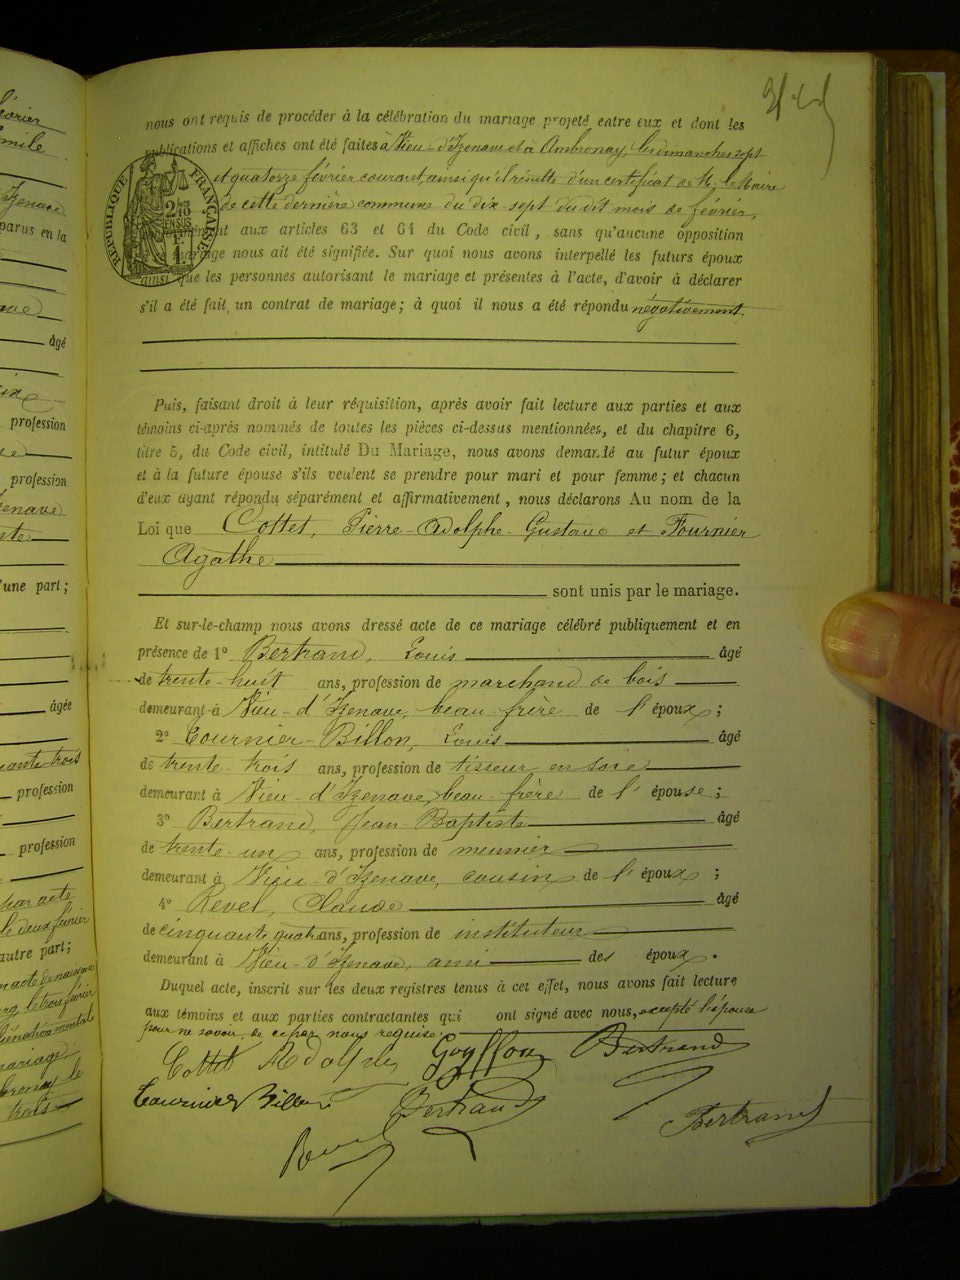 évrier
mile
Izenave
parus en la
âgé
profession
profession
enave
une part ;
âgée
ante trois
profession
profession
par acte
le deux février
autre part ;
mariage
nous ont requis de procéder à la célébration du mariage projeté entre eux et dont les
publications et affiches ont été faites à Vieu-d'Izenave et à Ambronay, les dimanches sept
et quatorze février courant, ainsi qu'il résulte d'un certificat de M. le Maire
de cette dernière commune du dix sept du dit mois de février,
aux articles 63 et 64 du Code civil, sans qu'aucune opposition
mariage nous ait été signifiée. Sur quoi nous avons interpellé les futurs époux
ainsi que les personnes autorisant le mariage et présentes à l'acte, d'avoir à déclarer
s'il a été fait un contrat de mariage ; à quoi il nous a été répondu négativement.
RÉPUBLIQUE FRANÇAISE
2/10
EN SUS
1 F.
Puis, faisant droit à leur réquisition, après avoir fait lecture aux parties et aux
témoins ci-après nommés de toutes les pièces ci-dessus mentionnées, et du chapitre 6,
titre 5, du Code civil, intitulé Du Mariage, nous avons demandé au futur époux
et à la future épouse s'ils veulent se prendre pour mari et pour femme ; et chacun
d'eux ayant répondu séparément et affirmativement, nous déclarons Au nom de la
Loi que Cottet, Pierre-Adolphe-Gustave et Fournier
Agathe
sont unis par le mariage.
Et sur-le-champ nous avons dressé acte de ce mariage célébré publiquement et en
présence de 1° Bertrand, Louis âgé
de trente-huit ans, profession de marchand de bois
demeurant à Vieu-d'Izenave, beau frère de l'époux ;
2° Tournier-Billon, Louis âgé
de trente-trois ans, profession de tisseur en soie
demeurant à Vieu-d'Izenave, beau-frère de l'épouse ;
3° Bertrand, Jean-Baptiste âgé
de trente-un ans, profession de meunier
demeurant à Vieu-d'Izenave, cousin de l'époux ;
4° Revel, Claude âgé
de cinquante quatre ans, profession de instituteur
demeurant à Vieu-d'Izenave, ami des époux.
Duquel acte, inscrit sur les deux registres tenus à cet effet, nous avons fait lecture
aux témoins et aux parties contractantes qui ont signé avec nous, excepté l'épouse
pour ne savoir, de ce par nous requise.
Cottet Adolphe Goyffon Bertrand
Tournier Billon Bertrand Bertrand
Revel